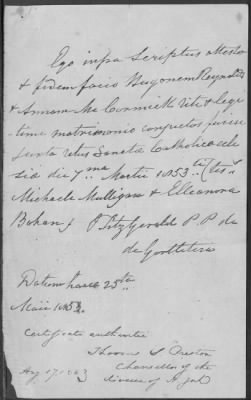 Ego infra Scriptus attestor
& fidem facio Hugonem Reynolds
& Annam McCormick rite & legi
time matrimonio conjuctos fuisse
juxta ritus Sanctæ Catholicæ eccle
siæ die 7ma Martii 1853 tes
Michaele Mulligan & Elleanora
Bohan J Fitzgerald P P de
de Gortletera
Datum hac 25ta
Maii 1853.
Certificate authentic
Thomas S Preston
Chancellor of the
diocese of N York
Aug 17 1863